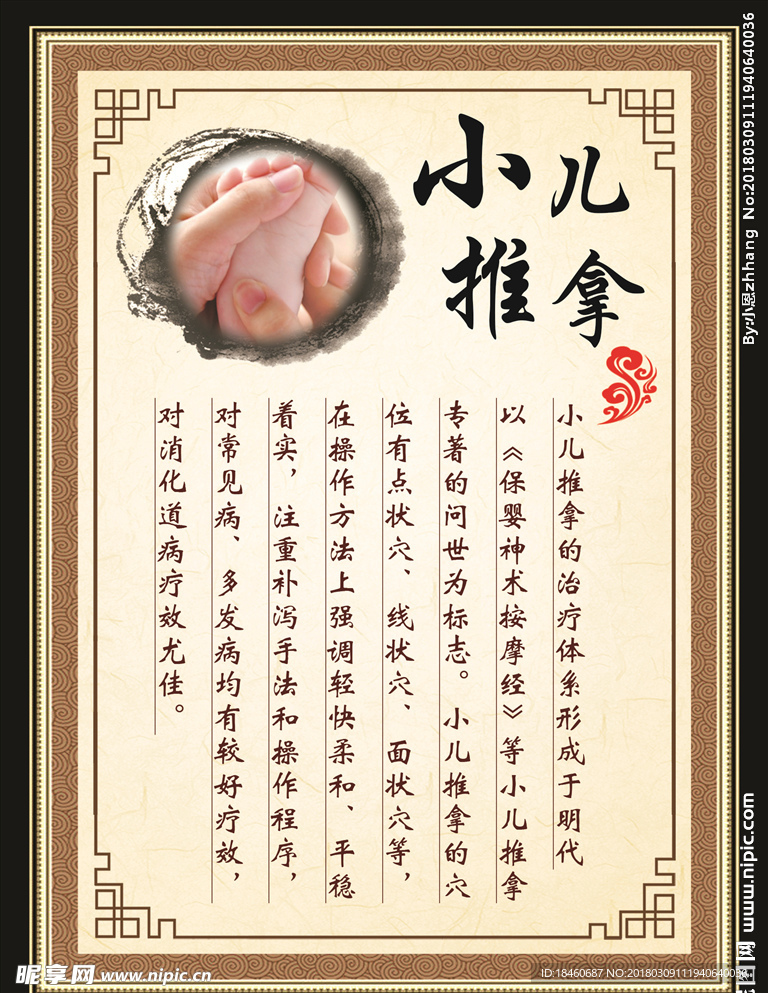 小儿
推拿
小儿推拿的治疗体系形成于明代
以《保婴神术按摩经》等小儿推拿
专著的问世为标志。小儿推拿的穴
位有点状穴、线状穴、面状穴等，
在操作方法上强调轻快柔和、平稳
着实，注重补泻手法和操作程序，
对常见病、多发病均有较好疗效，
对消化道病疗效尤佳。
By:小恩zhhang No:20180309111940640036
www.nipic.com
昵享网 www.nipic.cn
ID:18460687 NO:20180309111940640036